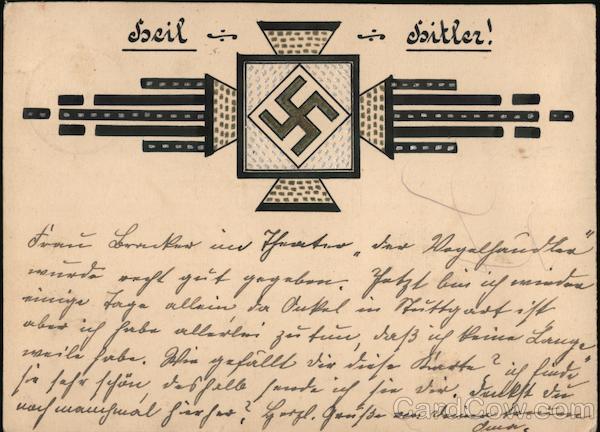 Heil Hitler!
Frau Brecker im Theater „der Vogelhändler"
wurde recht gut gegeben. Jetzt bin ich wieder
einige Tage allein, da Onkel in Stuttgart ist
aber ich habe allerlei zu tun, daß ich keine Lange
weile habe. Wie gefällt dir diese Karte? ich finde
sie sehr schön, deshalb sende ich sie dir, denkst du
noch manchmal hierher? Herzl. Grüße
Oma.
CardCow.com